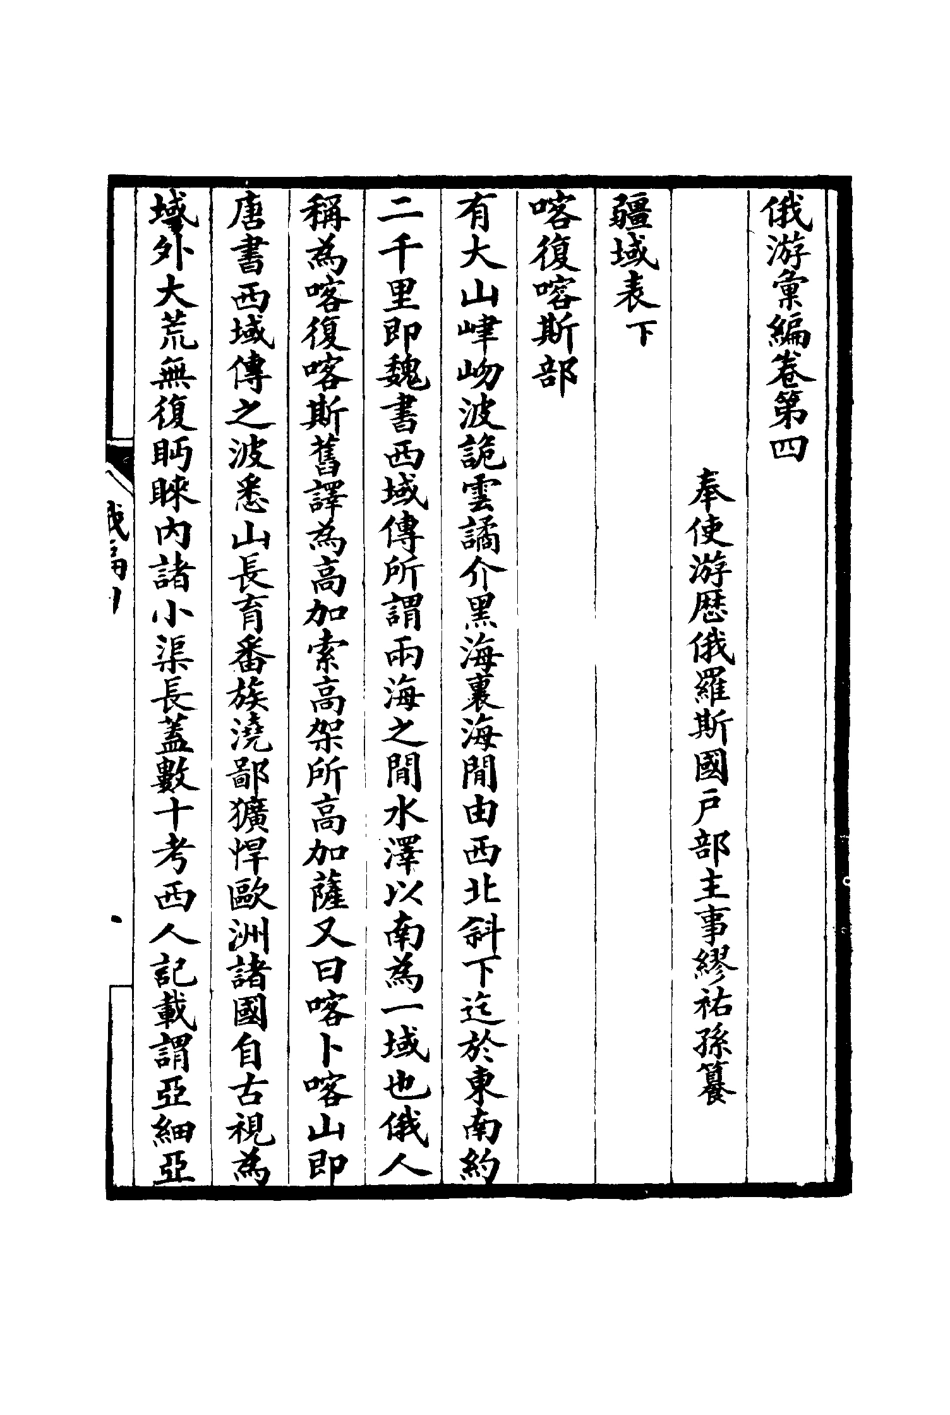 俄游彙編卷第四
奉使游歷俄羅斯國戶部主事繆祐孫纂
疆域表下
喀復喀斯部
有大山峍岉波詭雲譎介黑海裏海閒由西北斜下迄於東南約
二千里即魏書西域傳所謂兩海之閒水澤以南為一域也俄人
稱為喀復喀斯舊譯為高加索高架所高加薩又曰喀卜喀山即
唐書西域傳之波悉山長育番族澆鄙獷悍歐洲諸國自古視為
域外大荒無復眄睞內諸小渠長蓋數十考西人記載謂亞細亞